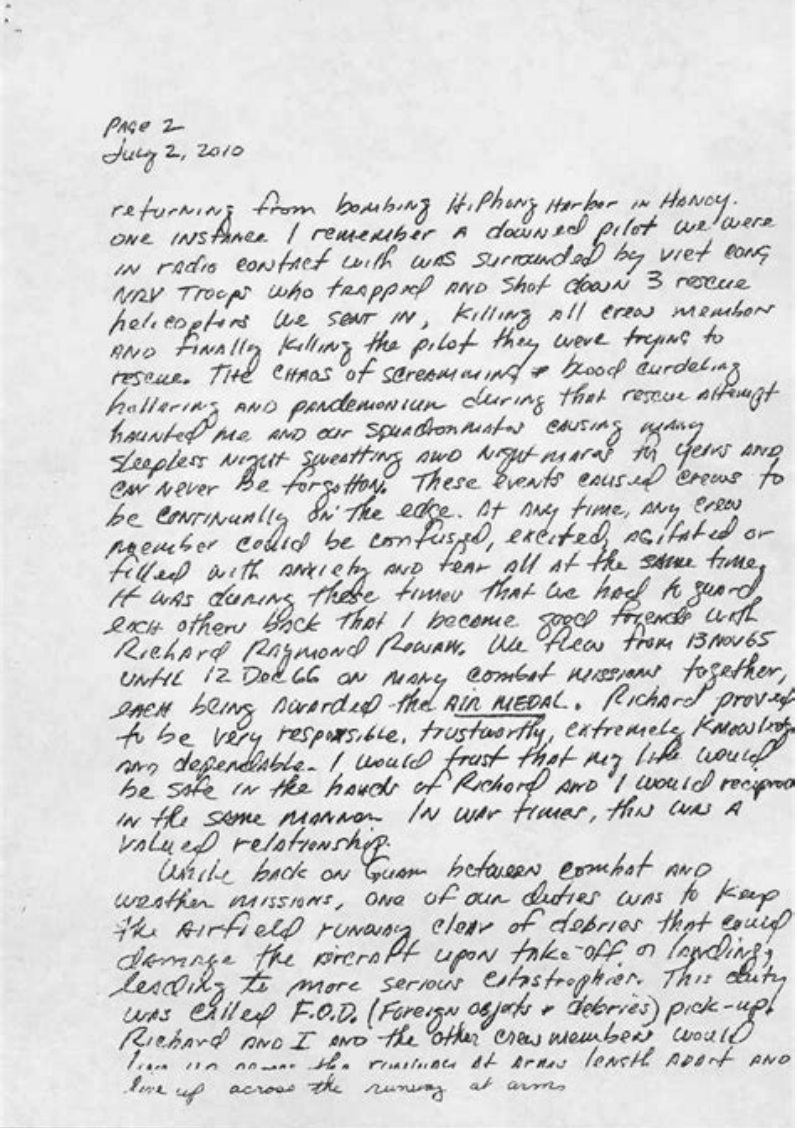 PAGE 2
July 2, 2010
returning from bombing H.Phong Harbor in HANOY.
ONE INSTANCE I remember A downed pilot we were
IN radio contact with was surrounded by viet cong
Troops who trapped AND shot down 3 rescue
helicopters we sent in, killing all crew members
AND finally killing the pilot they were trying to
rescue. THE CHAOS of screamming + blood curdeling
hollaring AND pandemonium during that rescue attempt
haunted me AND our squadronmates causing many
sleepless night sweatting AND nightmares for years AND
can never be forgotton. These events caused crews to
be continually on the edge. At any time, any crew
member could be confused, excited, agitated or
filled with anxiety AND fear all at the same time.
It was during these times that we had to guard
each others back that I become good friends with
Richard Raymond Rowan. We flew from 13 NOV 65
UNTIL 12 Dec 66 on many combat missions together,
each being awarded the AIR MEDAL. Richard proved
to be very responsible, trustworthy, extremely knowledg
AND dependable. I would trust that my life would
be safe in the hands of Richard AND I would reciproc
in the same manner. In war times, this was a
valued relationship.
While back on Guam between combat AND
weather missions, one of our duties was to keep
the airfield runway clear of debries that could
damage the aircraft upon take-off or landing,
leading to more serious catastrophies. This duty
was called F.O.D. (Foreign objects + debries) pick-up.
Richard AND I AND the other crewmembers would
line up across the runway at arms length apart AND
line up across the runway at arms